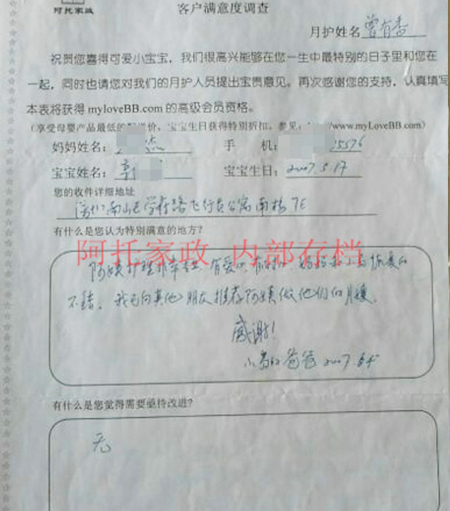 阿托家政
客户满意度调查
月护姓名 曾有香
祝贺您喜得可爱小宝宝,我们很高兴能够在您一生中最特别的日子里和您在
一起,同时也请您对我们的月护人员提出宝贵意见。再次感谢您的支持,认真填写
本表将获得 myloveBB.com 的高级会员资格。
(享受母婴产品最低的 价,宝宝生日获得特别折扣,参见: www.myLoveBB.com)
妈妈姓名: 手 机: 25576
宝宝姓名: 宝宝生日: 2007.5.17
您的收件详细地址
南山区学府路飞行员公寓南楼7E
有什么是您认为特别满意的地方?
阿托家政 内部存档
阿姨护理非常 有爱心
不错。我已向其他朋友推荐阿姨做他们的月嫂。
感谢!
爸爸 2007
有什么是您觉得需要亟待改进?
无